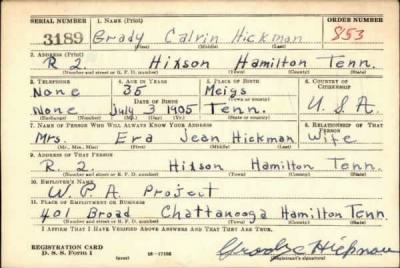 SERIAL NUMBER 1. NAME (Print) ORDER NUMBER
3189 Grady Calvin Hickman 853
(First) (Middle) (Last)
2. ADDRESS (Print)
R 2. Hixson Hamilton Tenn.
(Number and street or R. F. D. number) (Town) (County) (State)
3. TELEPHONE 4. AGE IN YEARS 5. PLACE OF BIRTH 6. COUNTRY OF CITIZENSHIP
None 35 Meigs
DATE OF BIRTH (Town or county)
None July 3 1905 Tenn. U.S.A.
(Exchange) (Number) (Mo.) (Day) (Yr.) (State or country)
7. NAME OF PERSON WHO WILL ALWAYS KNOW YOUR ADDRESS 8. RELATIONSHIP OF THAT PERSON
Mrs. Era Jean Hickman Wife
(Mr., Mrs., Miss) (First) (Middle) (Last)
9. ADDRESS OF THAT PERSON
R. 2. Hixson Hamilton Tenn.
(Number and street or R. F. D. number) (Town) (County) (State)
10. EMPLOYER'S NAME
W.P.A. Project
11. PLACE OF EMPLOYMENT OR BUSINESS
401 Broad Chattanooga Hamilton Tenn.
(Number and street or R. F. D. number) (Town) (County) (State)
I AFFIRM THAT I HAVE VERIFIED ABOVE ANSWERS AND THAT THEY ARE TRUE.
REGISTRATION CARD
D. S. S. FORM 1 (over) 16-17105
(Registrant's signature)